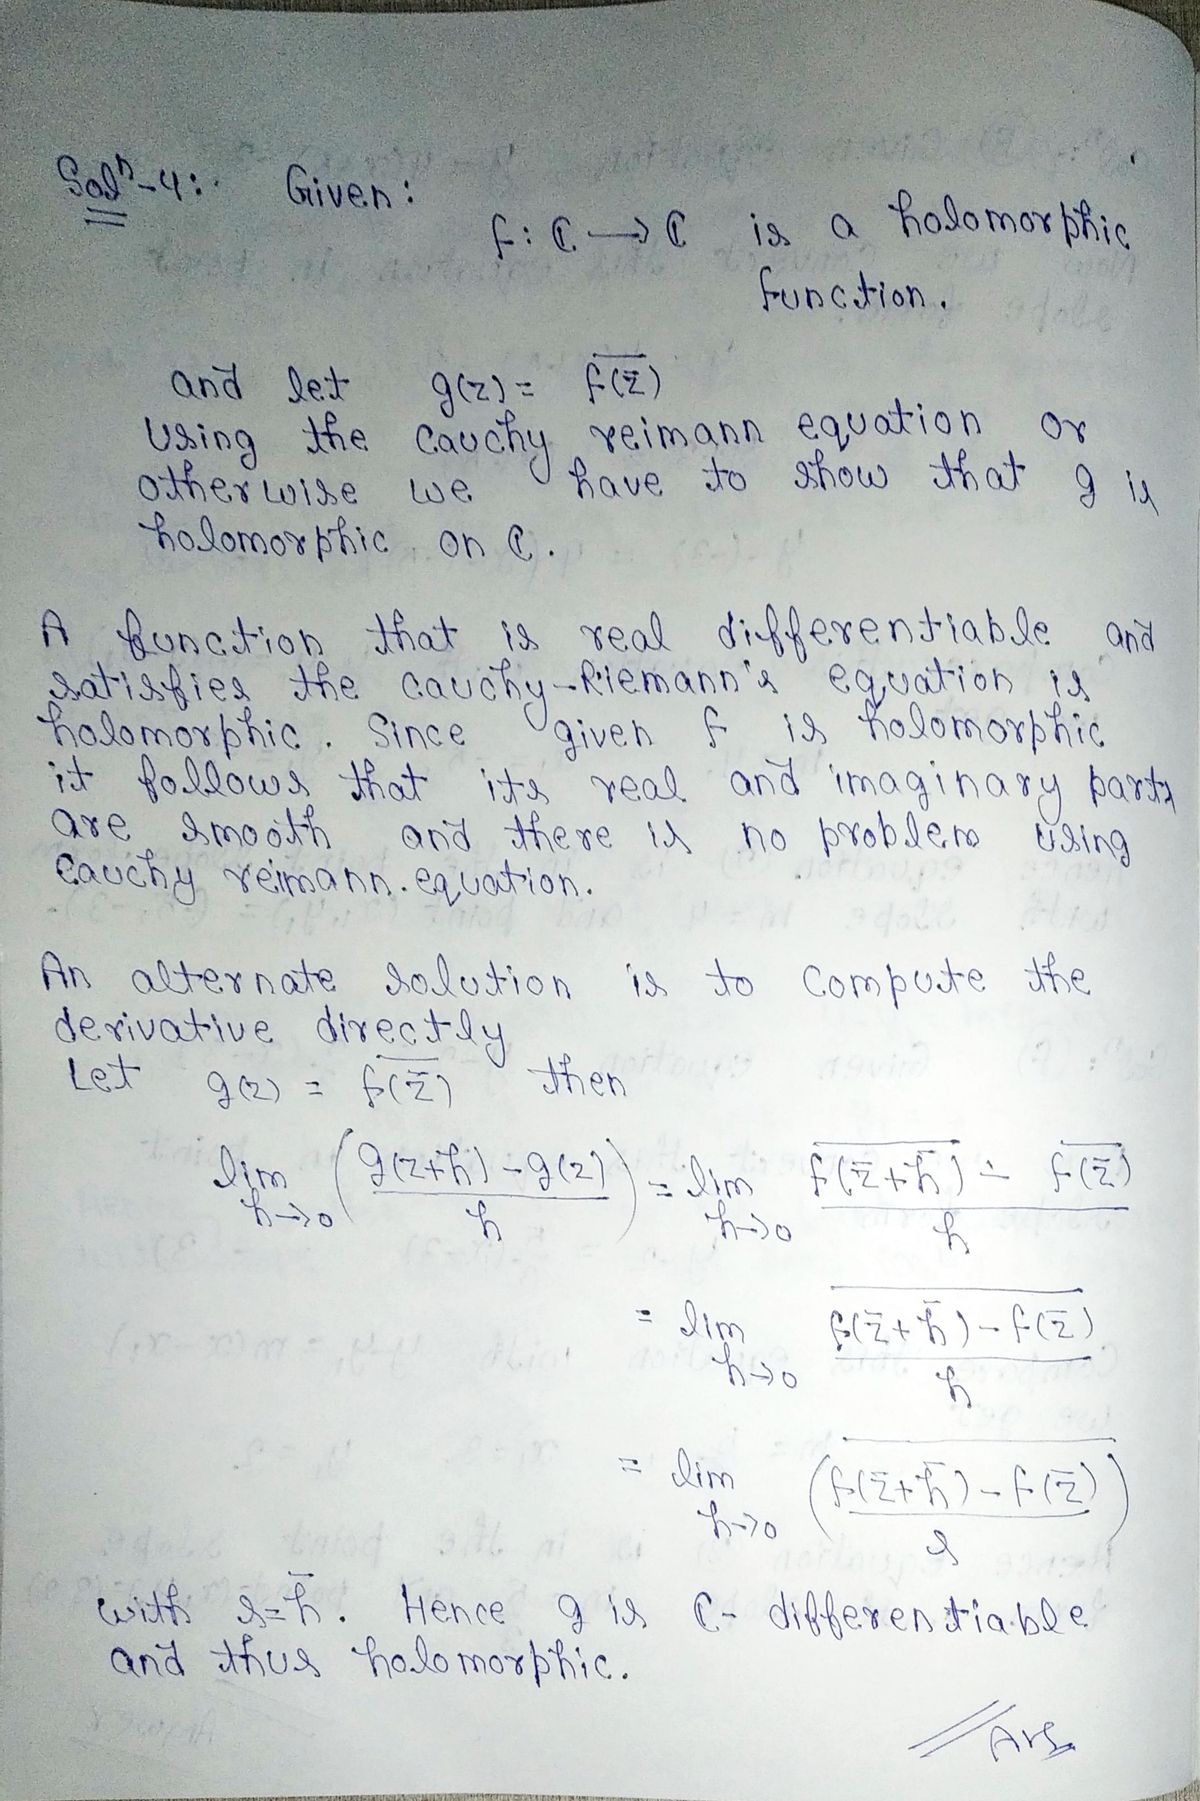 Solⁿ-4:. Given:
f: ℂ → ℂ is a holomorphic
function.
and let g(z) = \overline{f(z̄)}
Using the cauchy reimann equation or
otherwise we have to show that g is
holomorphic on ℂ.
A function that is real differentiable and
satisfies the cauchy-Riemann's equation is
holomorphic. Since given f is holomorphic
it follows that its real and imaginary parts
are smooth and there is no problem using
Cauchy reimann.equation.
An alternate solution is to compute the
derivative directly
Let g(z) = \overline{f(z̄)} then
lim_{h→0} ( \frac{g(z+h) - g(z)}{h} ) = lim_{h→0} \frac{\overline{f(z̄+h̄)} - \overline{f(z̄)}}{h}
= lim_{h→0} \frac{\overline{f(z̄+h̄) - f(z̄)}}{h}
= lim_{h→0} \overline{( \frac{f(z̄+h̄) - f(z̄)}{s} )}
with s=h̄. Hence g is ℂ- differentiable
and thus holomorphic.
// Ans